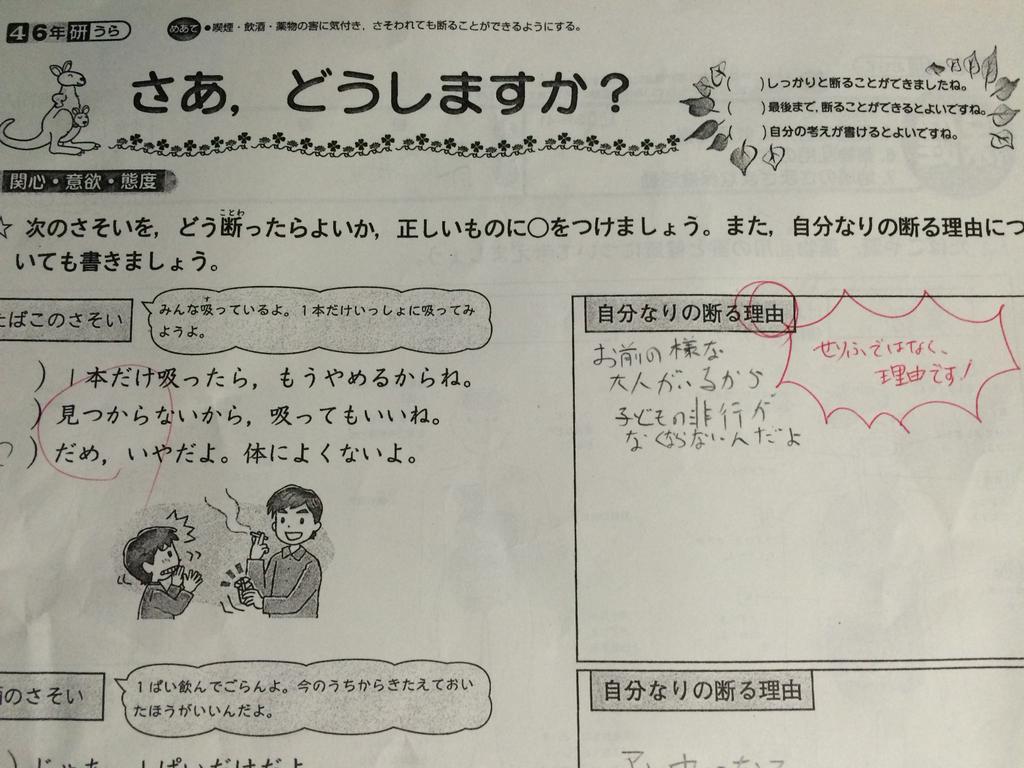 4 6年 研 うら
めあて ●喫煙・飲酒・薬物の害に気付き，さそわれても断ることができるようにする。
さあ，どうしますか？
(　　)しっかりと断ることができましたね。
(　　)最後まで，断ることができるとよいですね。
(　　)自分の考えが書けるとよいですね。
関心・意欲・態度
☆ 次のさそいを，どう断ったらよいか，正しいものに○をつけましょう。また，自分なりの断る理由につ
いても書きましょう。
たばこのさそい
みんな吸っているよ。１本だけいっしょに吸ってみ
ようよ。
)１本だけ吸ったら，もうやめるからね。
)見つからないから，吸ってもいいね。
○)だめ，いやだよ。体によくないよ。
自分なりの断る理由
お前の様な
大人がいるから
子どもの非行が
なくならないんだよ
せりふではなく、
理由です！
のさそい
１ぱい飲んでごらんよ。今のうちからきたえておい
たほうがいいんだよ。
自分なりの断る理由